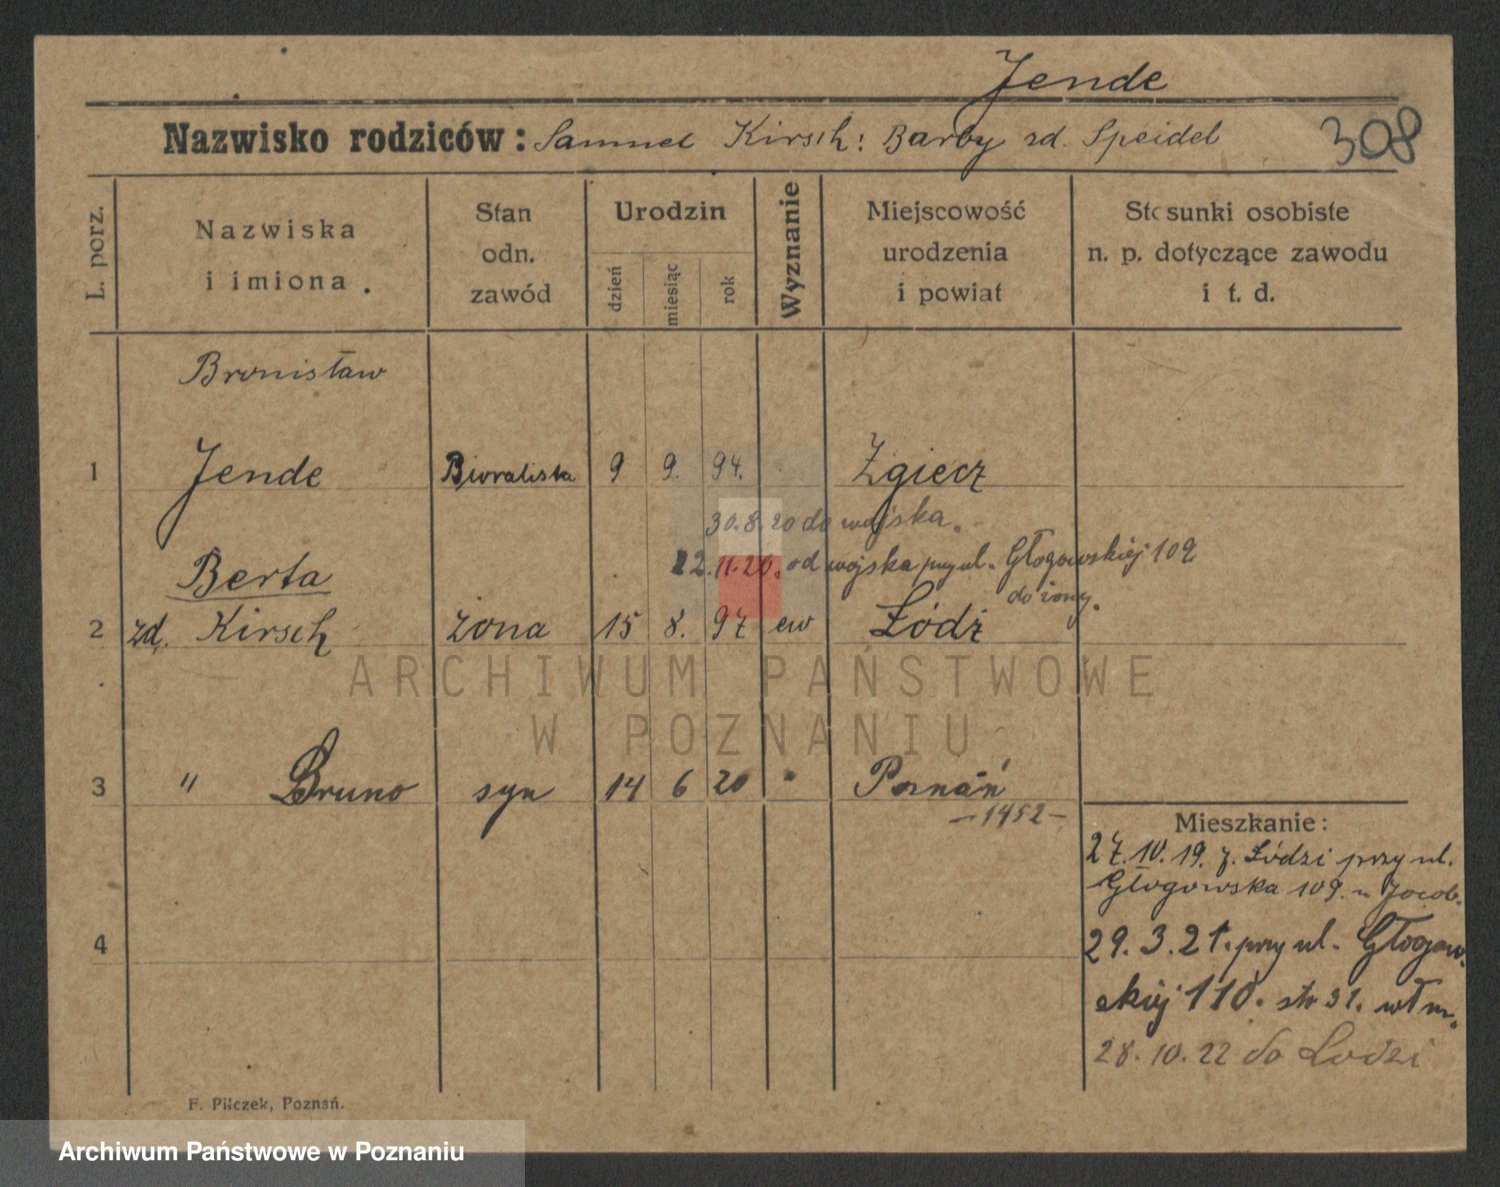 Jende
Nazwisko rodziców: Samuel Kirsch: Barby zd. Speidel
308
L. porz.
Nazwiska
i imiona.
Stan
odn.
zawód
Urodzin
dzień
miesiąc
rok
Wyznanie
Miejscowość
urodzenia
i powiat
Stosunki osobiste
n. p. dotyczące zawodu
i t. d.
Bronisław
1 Jende Biuralista 9 9. 94. Zgierz
30.8.20 do wojska.
22.11.20. od wojska przy ul. Głogowskiej 109
do żony.
Berta
2 zd. Kirsch żona 15 8. 97 ew Łódź
ARCHIWUM PAŃSTWOWE
W POZNANIU
3 " Bruno syn 14 6 20 " Poznań
-1452-
Mieszkanie:
27.10.19. z. Łódzi przy ul.
Głogowska 109. u Jacob.
4
29.3.21. przy ul. Głogow-
skiej 110. str 31. wł m.
28.10.22 do Lodzi
F. Pilczek, Poznań.
Archiwum Państwowe w Poznaniu